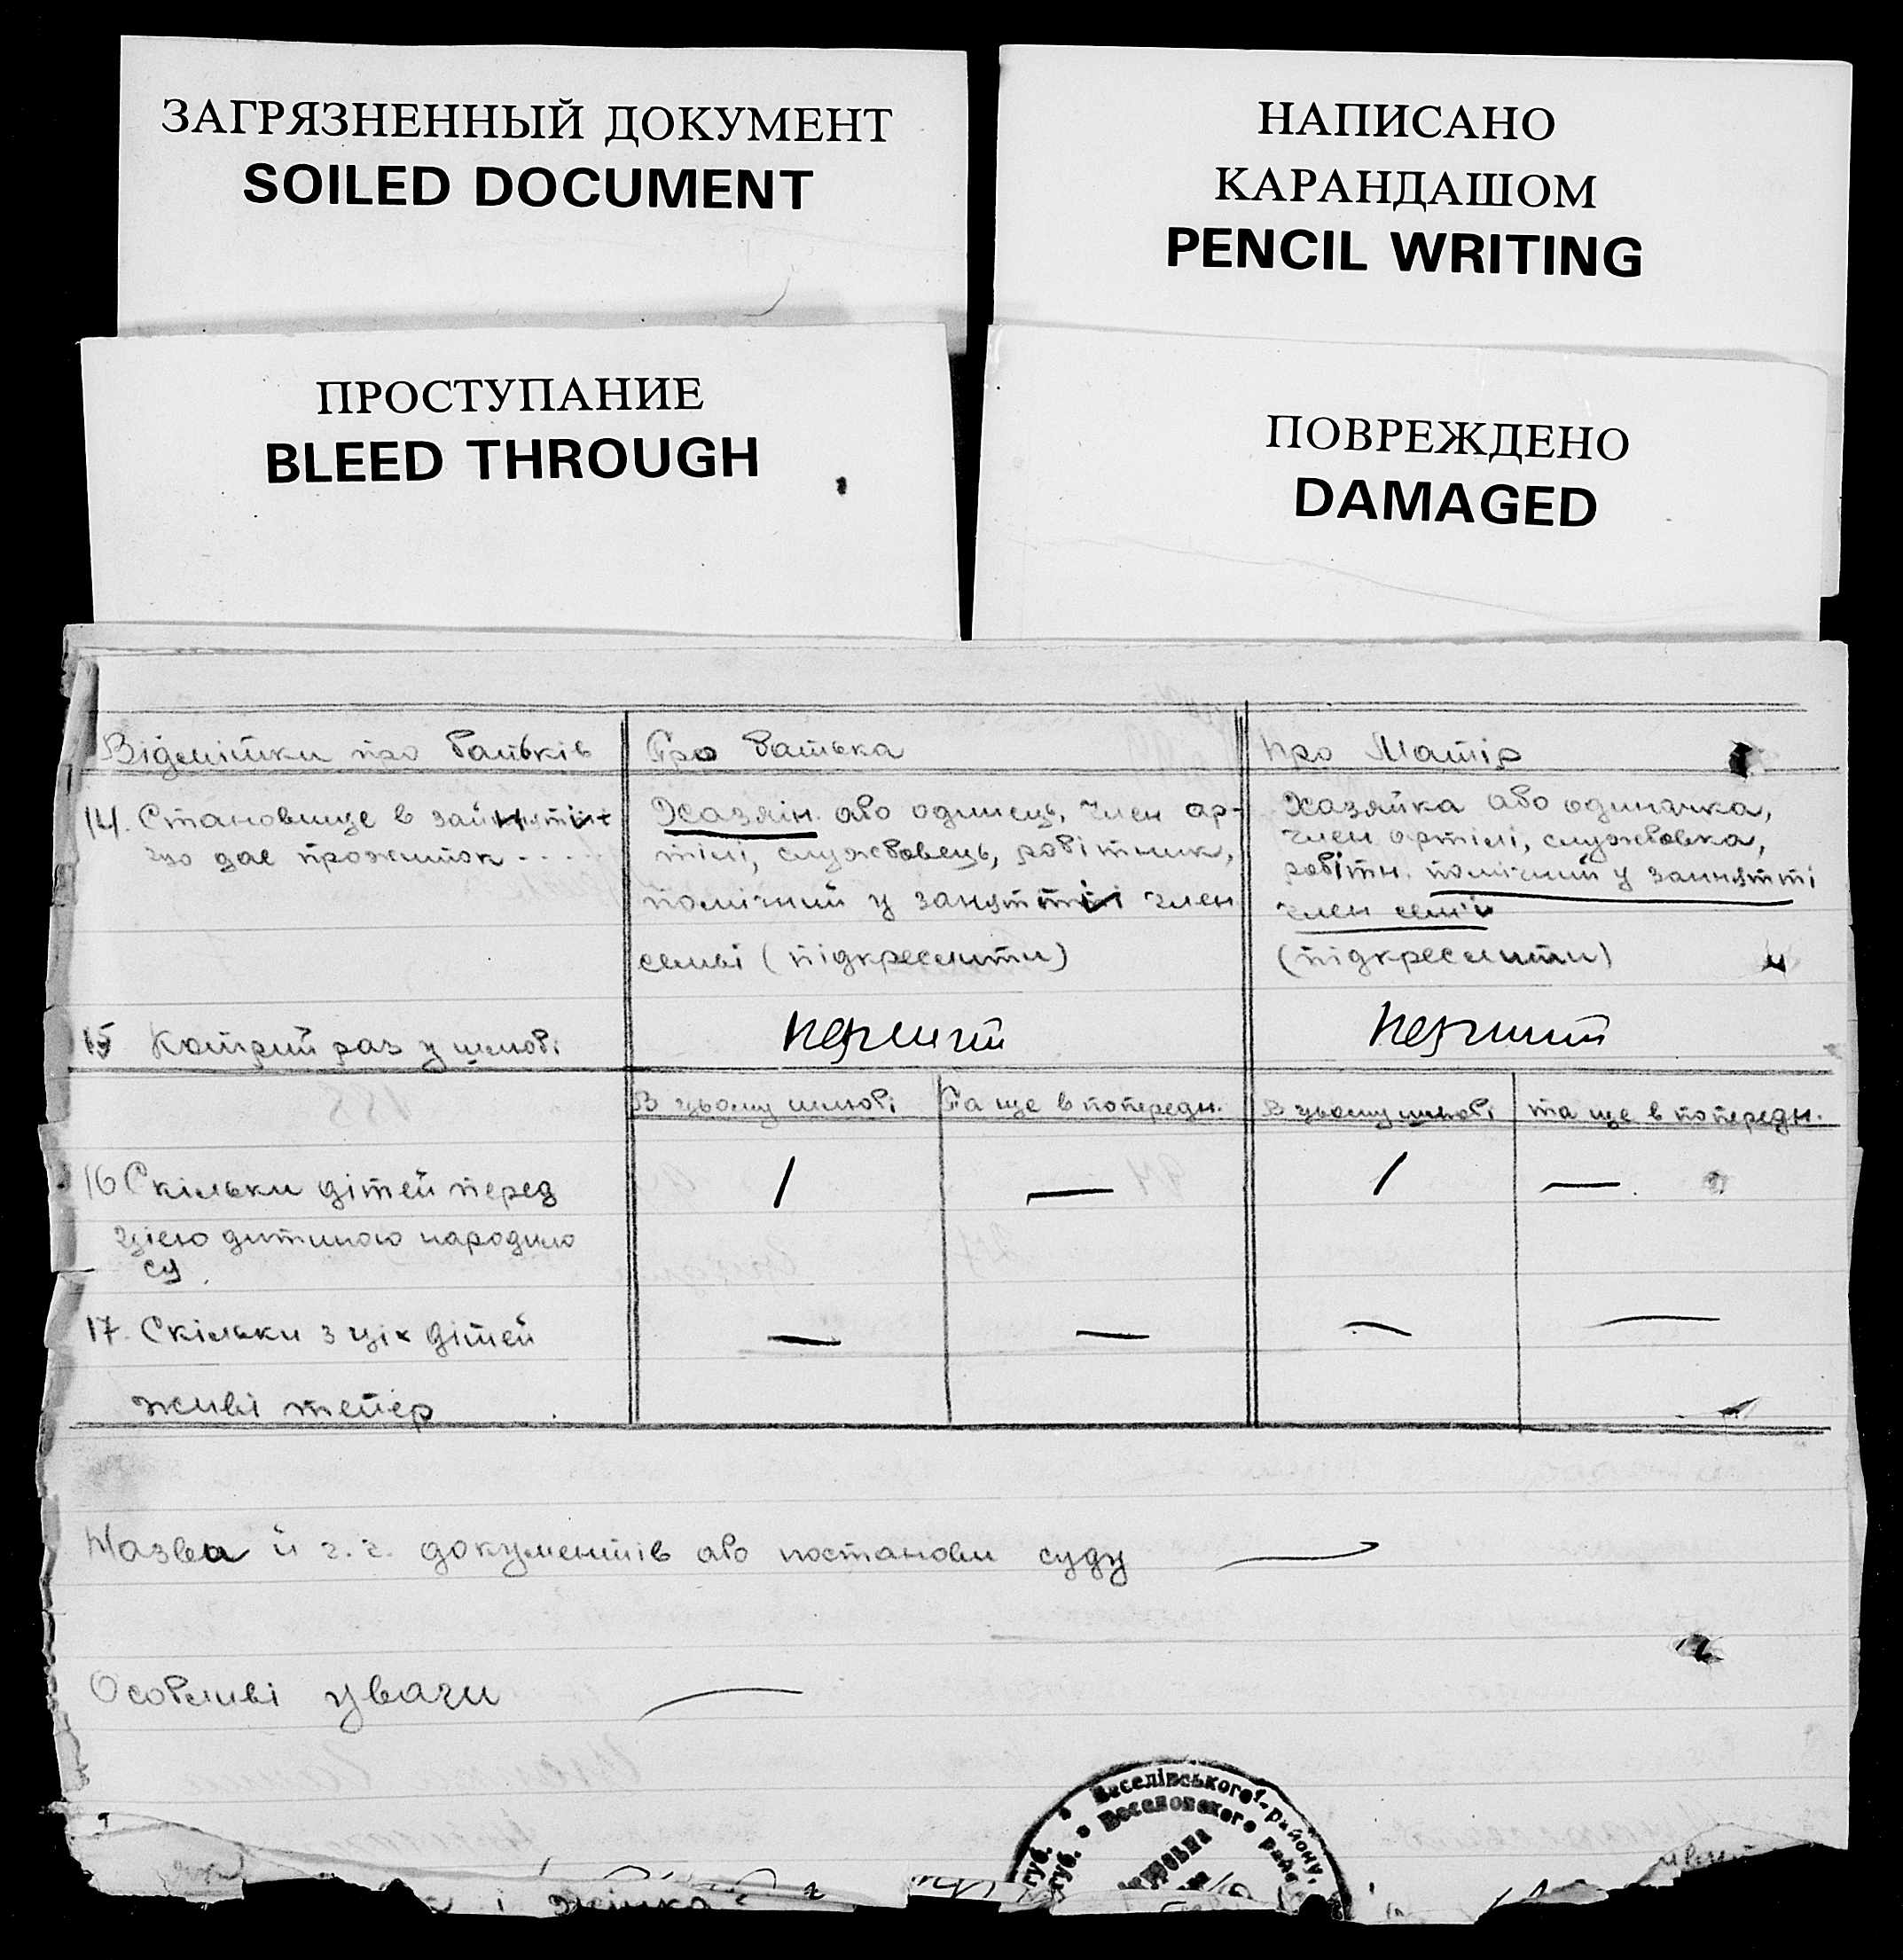 ЗАГРЯЗНЕННЫЙ ДОКУМЕНТ
SOILED DOCUMENT
НАПИСАНО
КАРАНДАШОМ
PENCIL WRITING
ПРОСТУПАНИЕ
BLEED THROUGH
ПОВРЕЖДЕНО
DAMAGED
Відмітки про батьків
Про батька
про Матір
14. Становище в
що дає прожиток - - - -
Хазяін або одинець, член ар-
тілі, службовець, робітник,
помічний у занятті член
семьі (підкреслити)
Хазяйка або одиначка,
член артілі, службовка,
робітн. помічний у заннятті
член семьі
(підкреслити)
15 Котрий раз у шлюбі
первий
первий
В цьому шлюбі
Та ще в попередн.
В цьому шлюбі
та ще в попередн.
16 Скільки дітей перед
цією дитиною народило
ся
1 — 1 —
17. Скільки з ціх дітей
живі тепер
— — — —
Назва й ч.ч. документів або постанови суду —
Особливі уваги —
Веселівського району
Веселовского райо
жінка